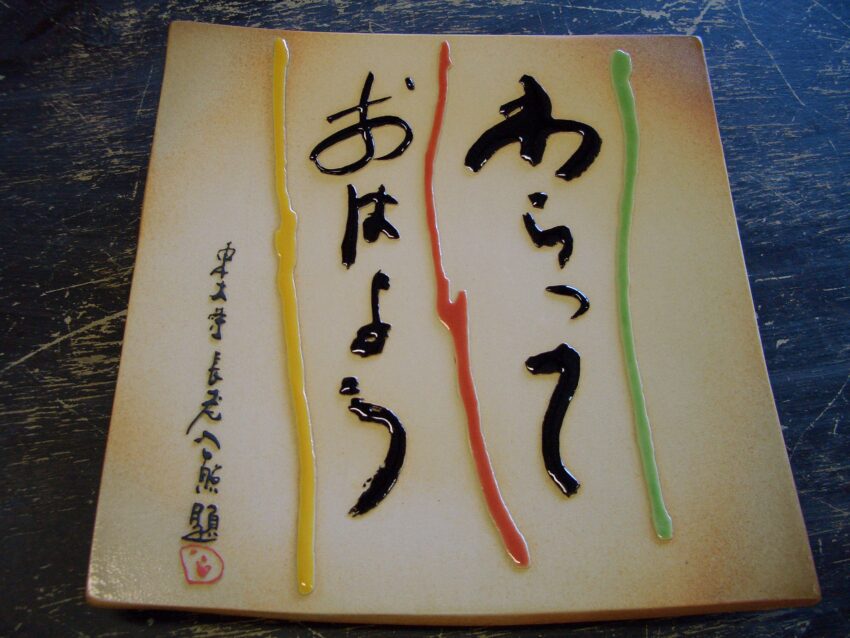 わらって
おはよう
東大寺長老 公照題